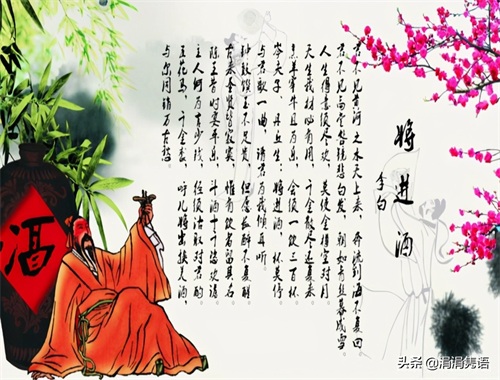 将进酒
李白
君不见黄河之水天上来，奔流到海不复回。
君不见高堂明镜悲白发，朝如青丝暮成雪
人生得意须尽欢，莫使金樽空对月
天生我材必有用，千金散尽还复来
烹羊宰牛且为乐，会须一饮三百杯
岑夫子，丹丘生，将进酒，杯莫停
与君歌一曲，请君为我倾耳听。
钟鼓馔玉不足贵，但愿长醉不复醒
古来圣贤皆寂寞，惟有饮者留其名
陈王昔时宴平乐，斗酒十千恣欢谑
主人何为言少钱，径须沽取对君酌
五花马，千金裘，呼儿将出换美酒，
与尔同销万古愁。
酒
头条 @涓涓隽语